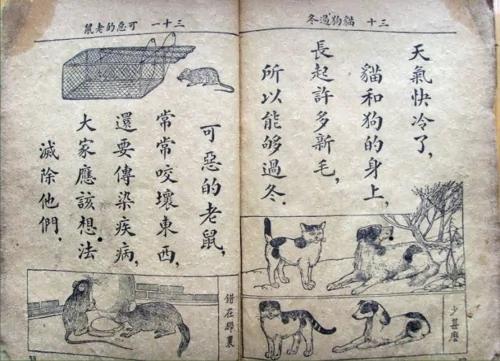 三十 貓狗過冬
天氣快冷了，
貓和狗的身上，
長起許多新毛，
所以能够過冬．
少甚麼
三十一 可惡的老鼠
可惡的老鼠，
常常咬壞東西，
還要傳染疾病，
大家應該想法
滅除他們．
錯在那裏